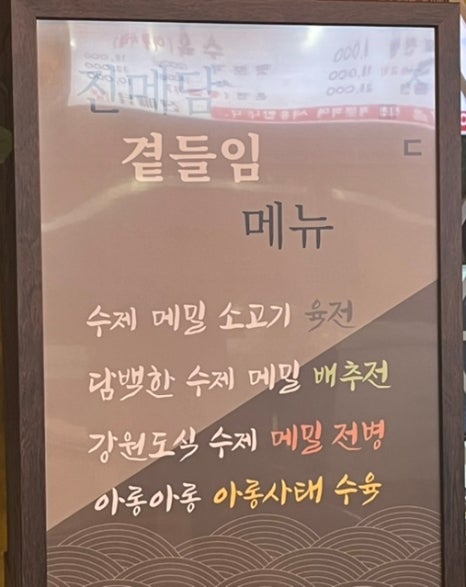 진메담
곁들임
ㄷ
메뉴
수제 메밀 소고기 육전
담백한 수제 메밀 배추전
강원도식 수제 메밀 전병
아롱아롱 아롱사태 수육